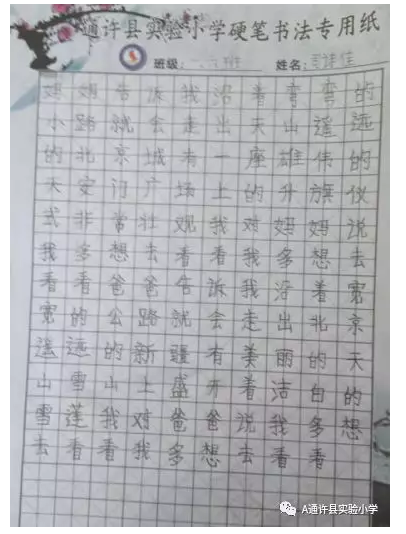 通许县实验小学硬笔书法专用纸
班级: 一.六班 姓名:
妈妈告诉我沿着弯弯的
小路就会走出天山遥远
的北京城有一座雄伟的
天安门广场上的升旗仪
式非常壮观我对妈妈说
我多想去看看我多想去
看看爸爸告诉我沿着宽
宽的公路就会走出北京
遥远的新疆有美丽的天
山雪山上盛开着洁白的
雪莲我对爸爸说我多想
去看看我多想去看看
A通许县实验小学